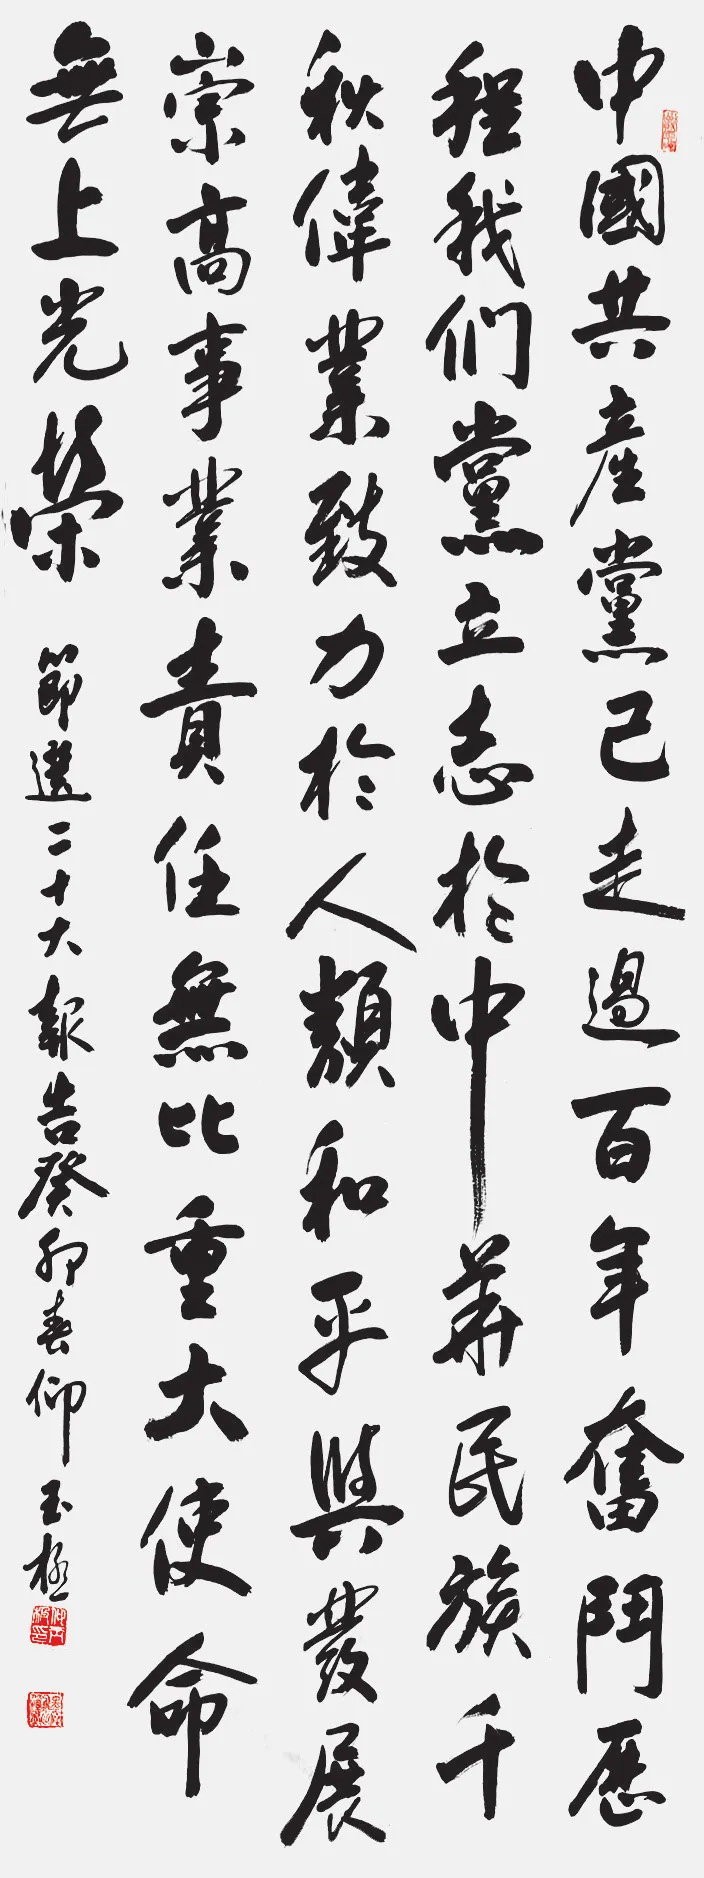 中國共產黨已走過百年奮鬥歷
程我们黨立志於中華民族千
秋偉業致力於人類和平與發展
崇高事業責任無比重大使命
無上光榮
節選二十大報告癸卯春仰玉極